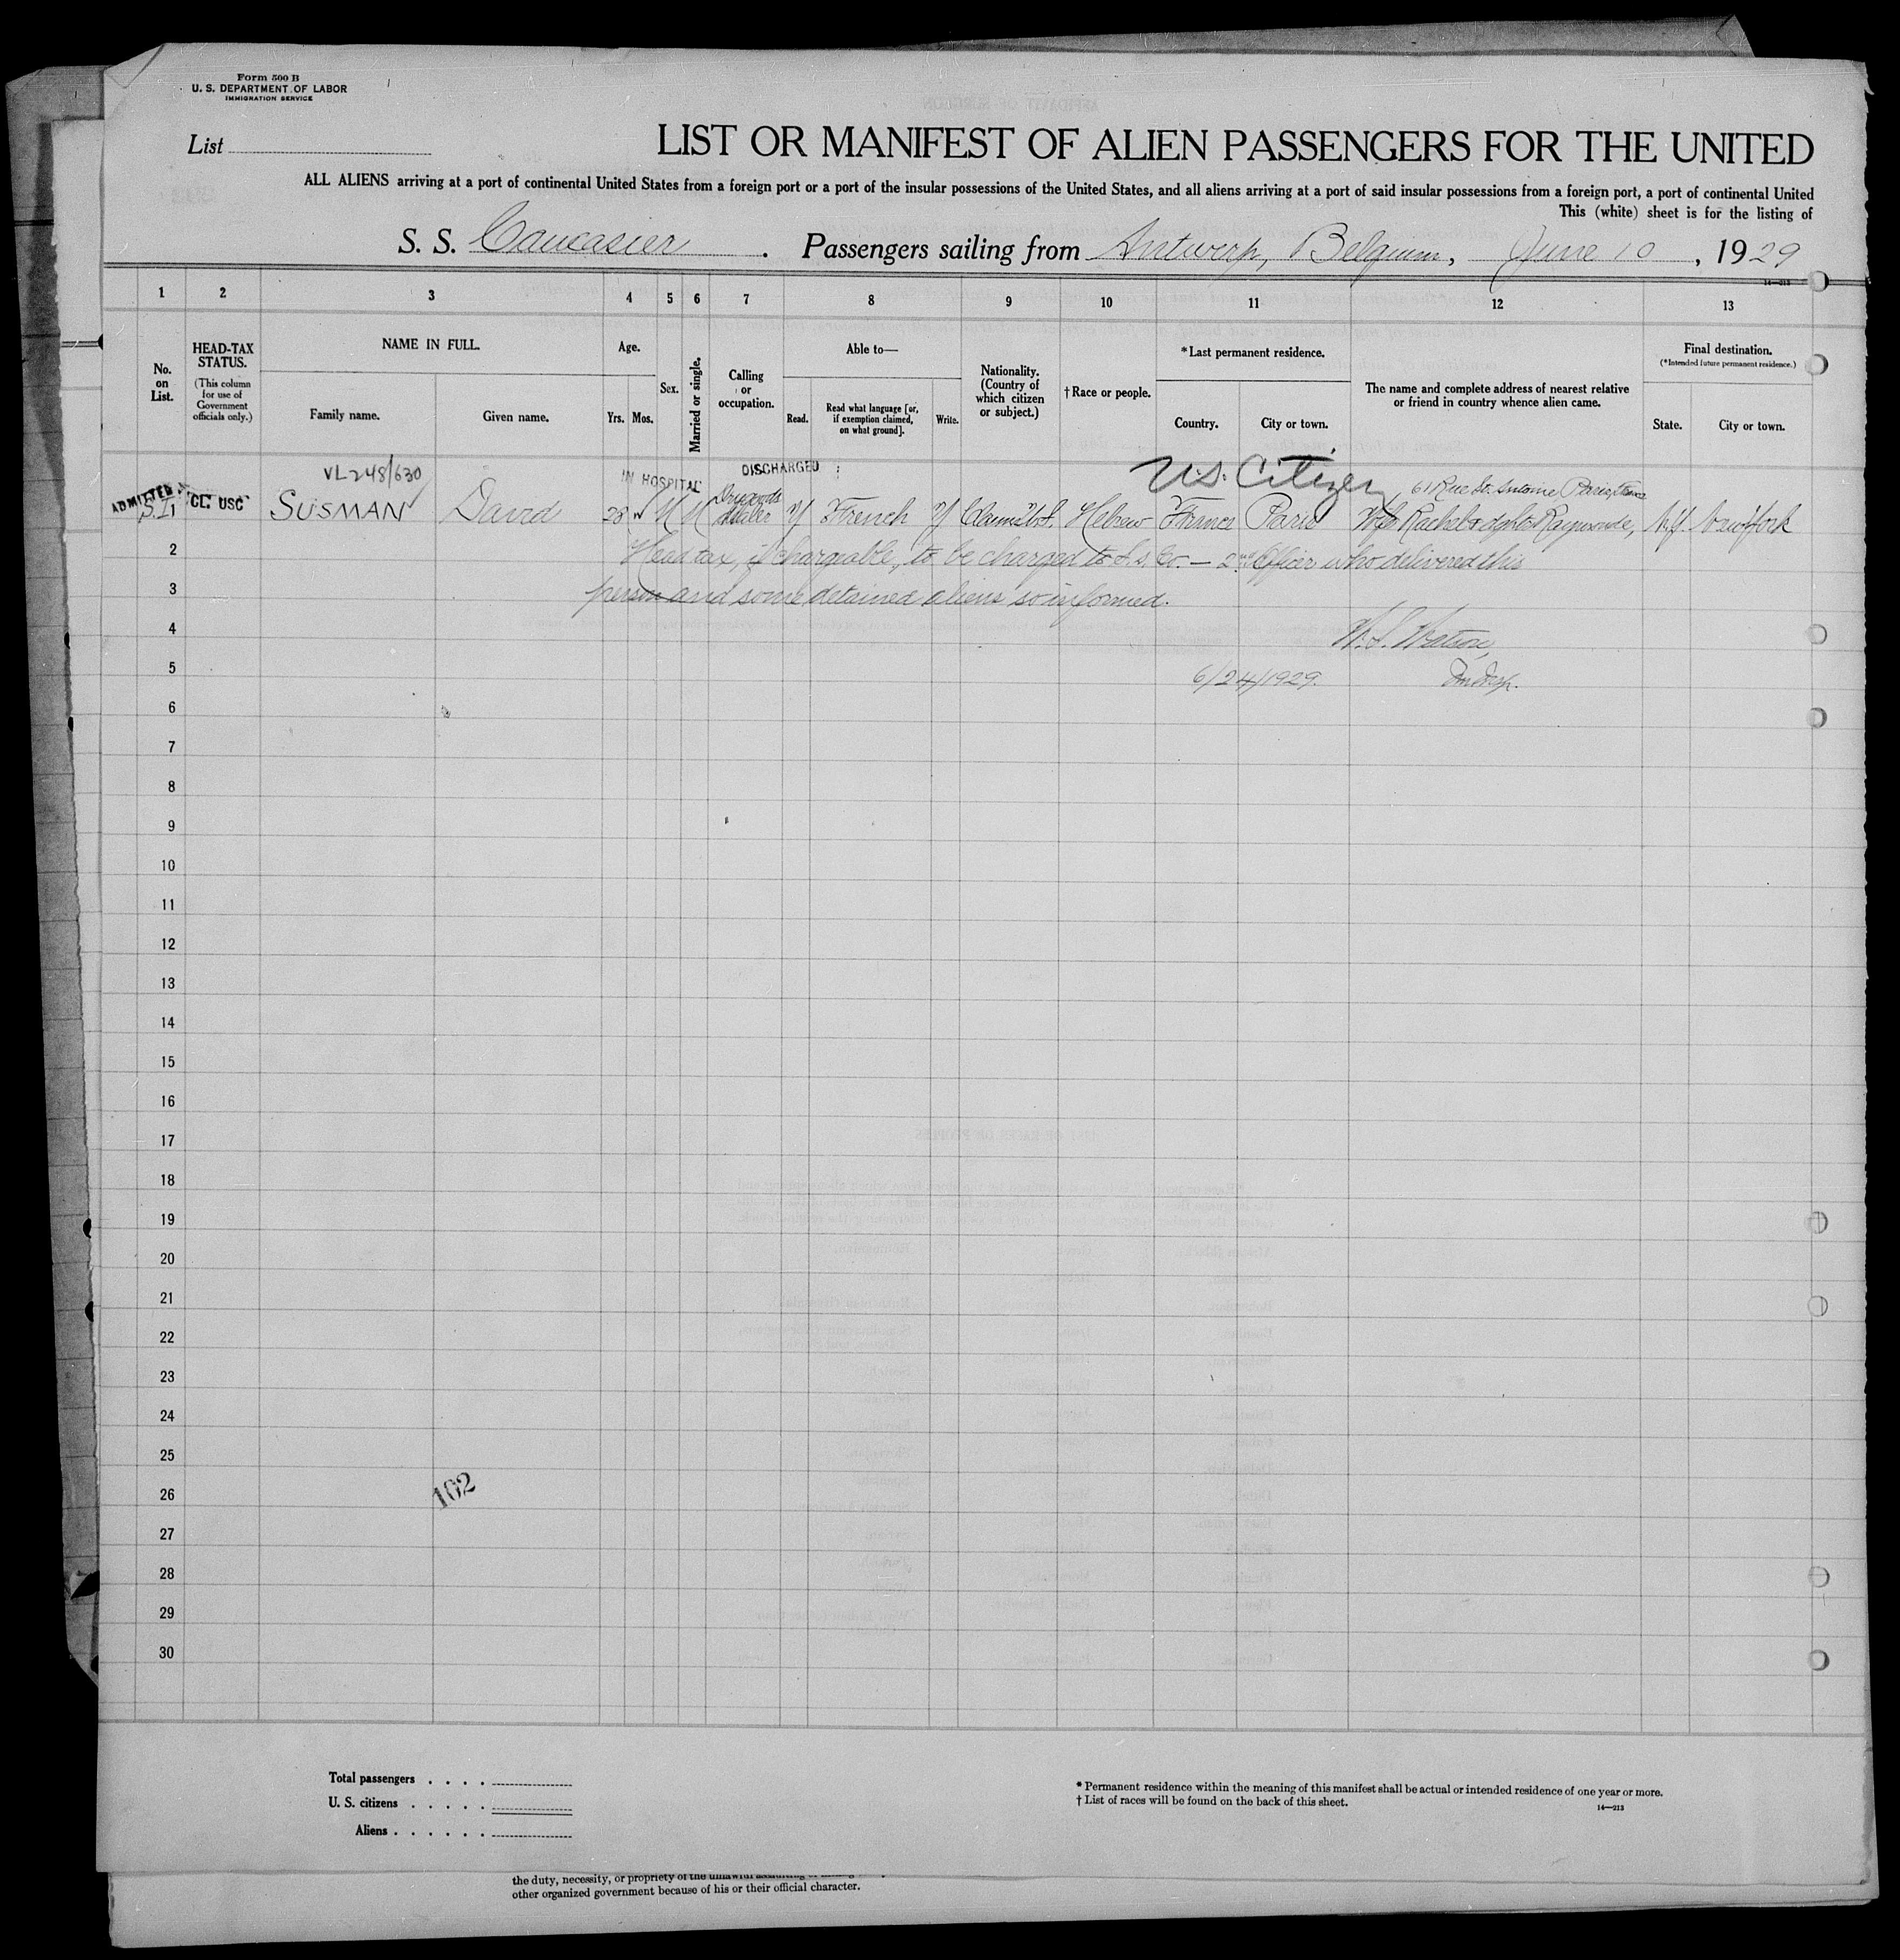 Form 500 B
U. S. DEPARTMENT OF LABOR
IMMIGRATION SERVICE
List
LIST OR MANIFEST OF ALIEN PASSENGERS FOR THE UNITED
ALL ALIENS arriving at a port of continental United States from a foreign port or a port of the insular possessions of the United States, and all aliens arriving at a port of said insular possessions from a foreign port, a port of continental United
This (white) sheet is for the listing of
S. S. Caucasier. Passengers sailing from Antwerp, Belgium, June 10, 1929
14—213
1 2 3 4 5 6 7 8 9 10 11 12 13
No. on List.
HEAD-TAX STATUS.
(This column for use of Government officials only.)
NAME IN FULL.
Family name.
Given name.
Age.
Yrs. Mos.
Sex.
Married or single.
Calling or occupation.
Able to—
Read.
Read what language [or, if exemption claimed, on what ground].
Write.
Nationality. (Country of which citizen or subject.)
†Race or people.
*Last permanent residence.
Country.
City or town.
The name and complete address of nearest relative or friend in country whence alien came.
Final destination.
(*Intended future permanent residence.)
State.
City or town.
VL248/630
IN HOSPITAL
DISCHARGED
U.S. Citizen
61 Rue St. Antoine Paris, France
ADMITTED
S.I. 1 CL. USC SUSMAN David 28 M M Y French Y Claims U.S. Hebrew France Paris Wife Rachel & dghtr Raymonde, N.Y. New York
2 Head tax, if chargeable, to be charged to S.S. Co. — 2nd Officer who delivered this
3 person and some detained aliens so informed.
4 Watson,
5 6/24/1929. Imm Insp.
6
7
8
9
10
11
12
13
14
15
16
17
18
19
20
21
22
23
24
25
26
162
27
28
29
30
Total passengers
U. S. citizens
Aliens
* Permanent residence within the meaning of this manifest shall be actual or intended residence of one year or more.
† List of races will be found on the back of this sheet.
14—213
the duty, necessity, or propriety of the unlawful
other organized government because of his or their official character.